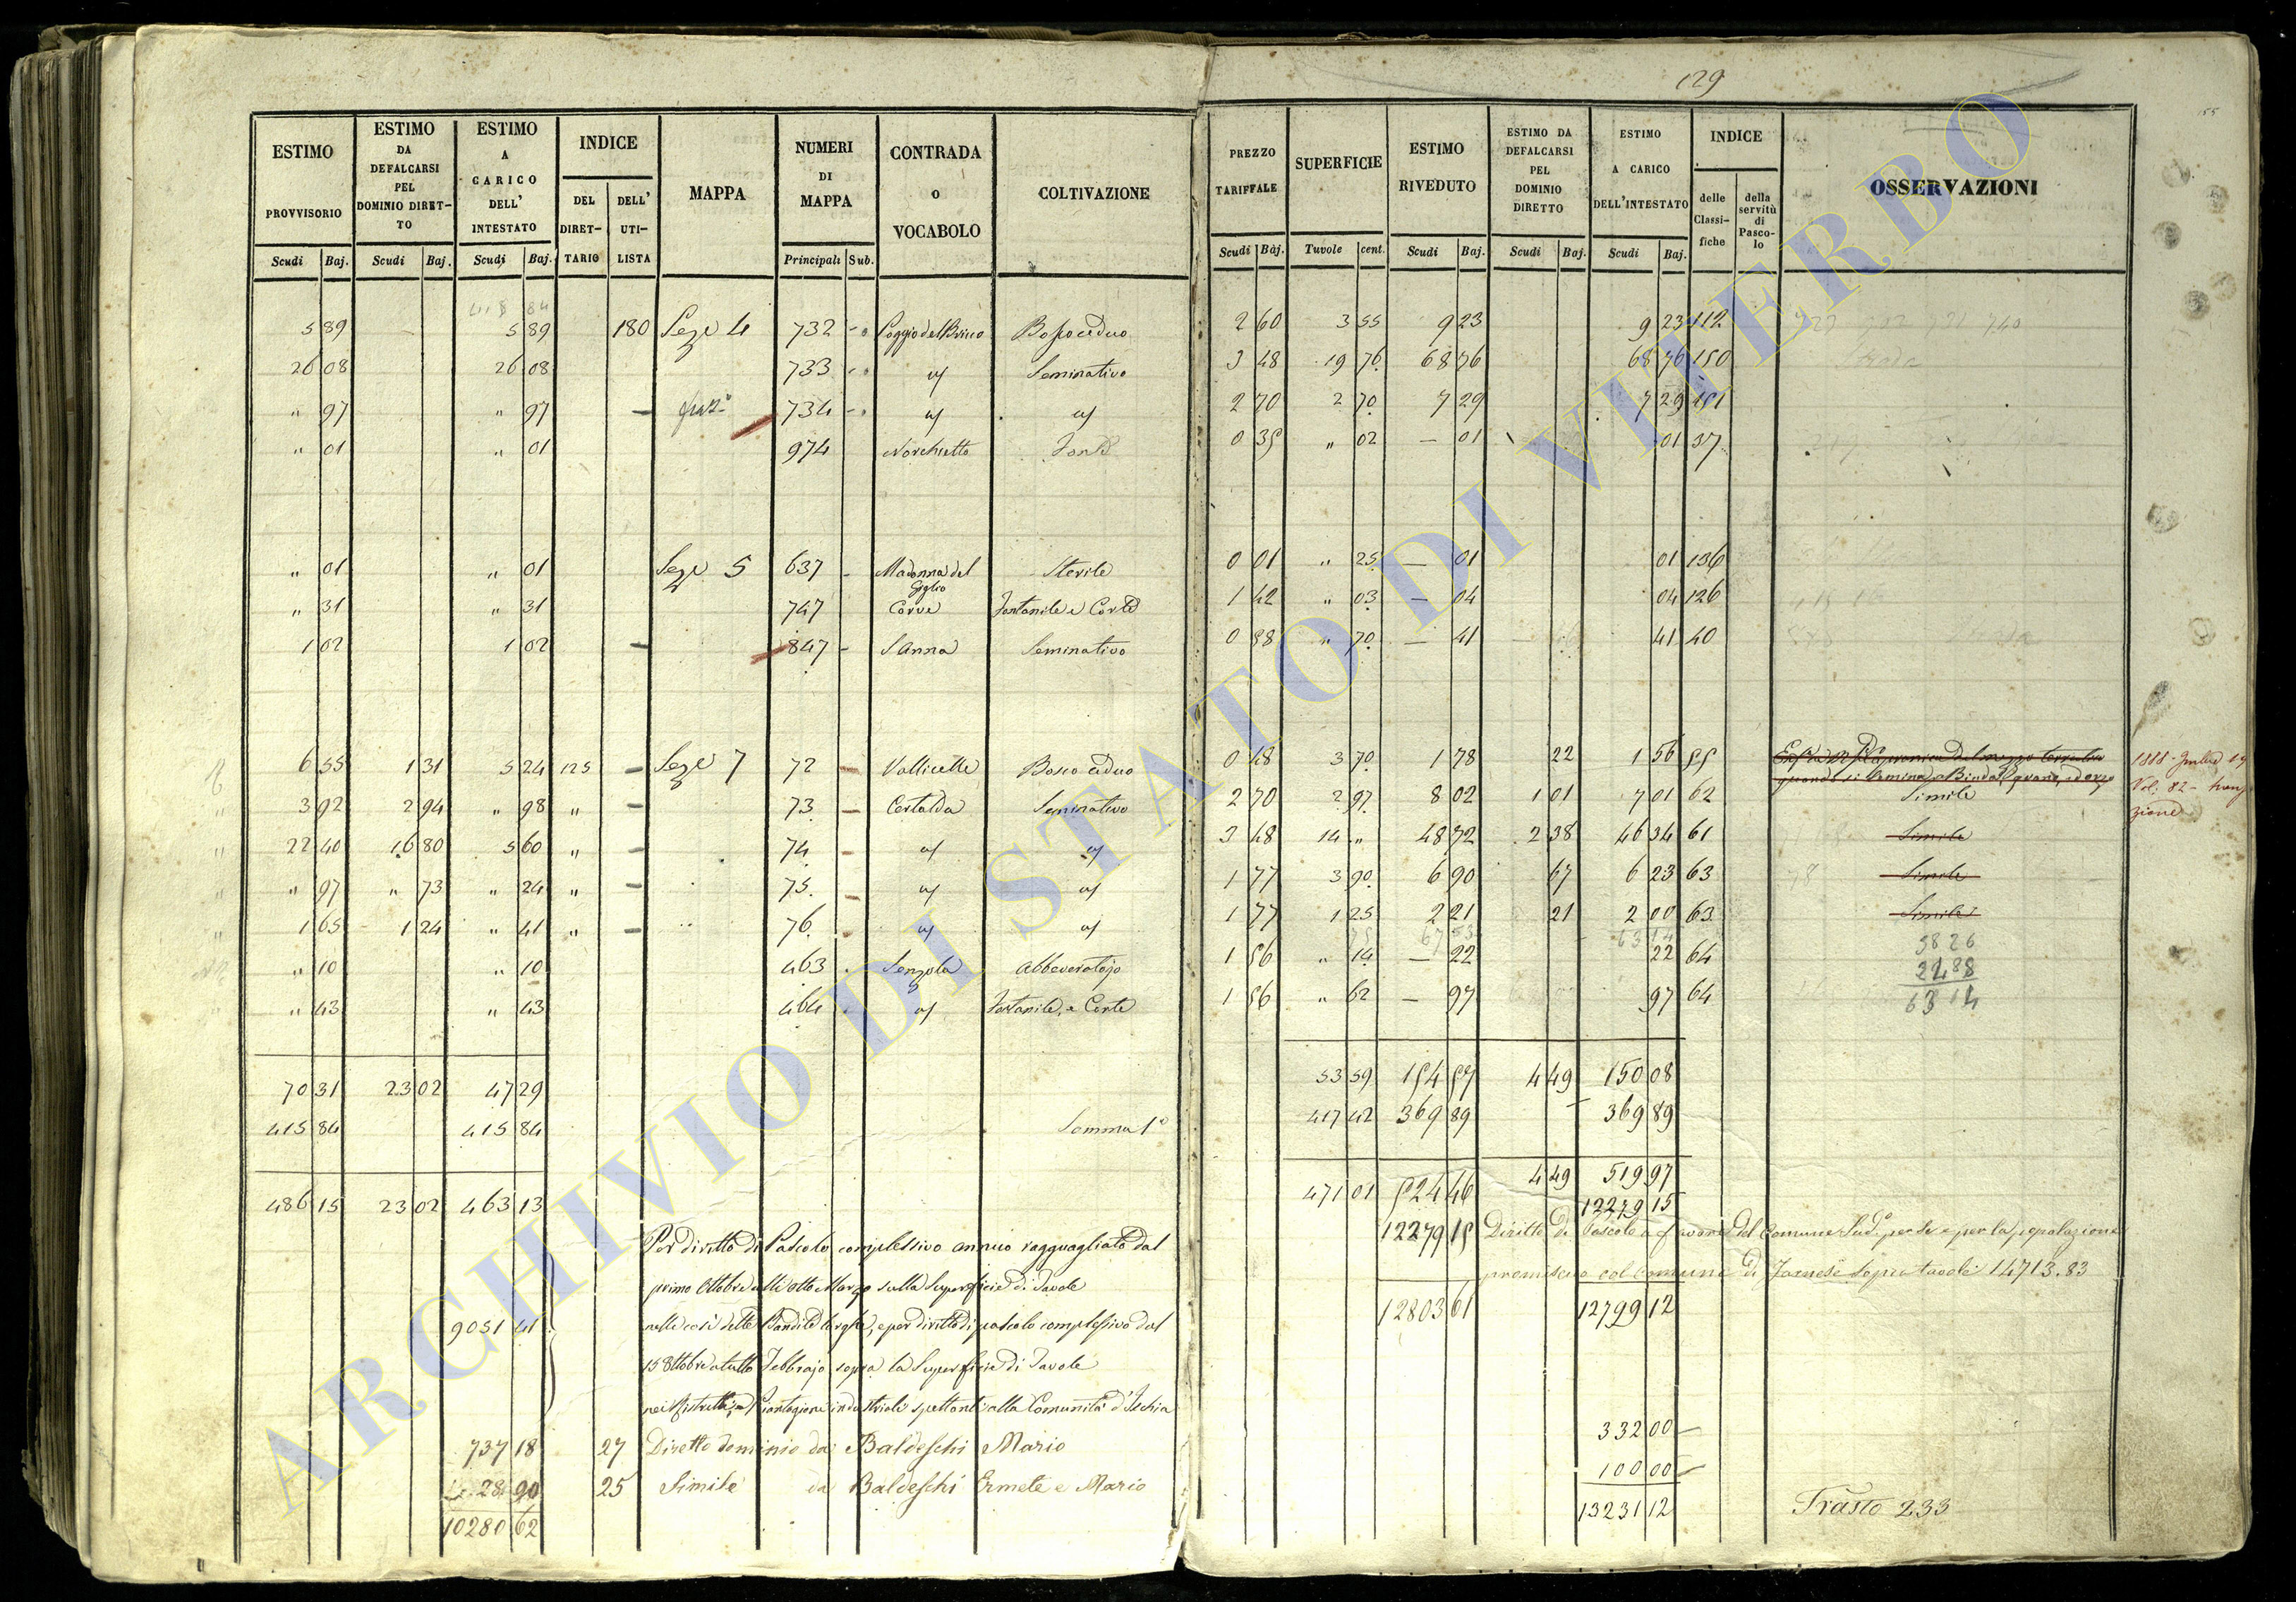 129
ESTIMO PROVVISORIO
ESTIMO DA DEFALCARSI PEL DOMINIO DIRET-TO
ESTIMO A CARICO DELL' INTESTATO
INDICE
DEL DIRET-TARIO
DELL' UTI-LISTA
MAPPA
NUMERI DI MAPPA
CONTRADA O VOCABOLO
COLTIVAZIONE
PREZZO TARIFFALE
SUPERFICIE
ESTIMO RIVEDUTO
ESTIMO DA DEFALCARSI PEL DOMINIO DIRETTO
ESTIMO A CARICO DELL'INTESTATO
INDICE
delle Classi-fiche
della servitù di Pasco-lo
OSSERVAZIONI
Scudi Baj. Scudi Baj. Scudi Baj. Principali Sub. Scudi Baj. Tavole cent. Scudi Baj. Scudi Baj. Scudi Baj.
5 89 5 89 180 Sez.e 4 732 Bosco ceduo 2 60 3 55 9 23 9 23 112
26 08 26 08 733 Seminativo 3 48 19 76 68 76 68 76 150
" 97 " 97 734 2 70 2 70 7 29 7 29 151
" 01 " 01 974 Norchietto 0 35 " 02 — 01 01 37
" 01 " 01 Sez.e 5 637 Madonna del Giglio Sterile 0 01 " 25 — 01 01 136
" 31 " 31 747 Fontanile e Corte 1 42 " 03 — 04 04 126
1 02 1 02 847 S Anna Seminativo 0 58 " 70 — 41 41 40
6 55 1 31 5 24 125 Sez.e 7 72 Vallicelle Bosco ceduo 0 48 3 70 1 78 22 1 56 55
3 92 2 94 " 98 " 73 Certalda Seminativo 2 70 2 97 8 02 1 01 7 01 62 Simile
22 40 16 80 5 60 " 74 3 48 14 " 48 72 2 38 46 34 61 Simile
" 97 " 73 " 24 " 75 1 77 3 90 6 90 67 6 23 63 Simile
1 65 1 24 " 41 " 76 1 77 1 25 2 21 21 2 00 63 Simile
" 10 " 10 463 Abbeveratojo 1 56 " 14 — 22 22 64
" 43 " 43 464 Fontanile, e Corte 1 56 " 62 — 97 97 64
1888
Vol. 82
70 31 23 02 47 29 53 59 154 57 4 49 150 08
415 84 415 84 Somma 1° 417 42 369 89 369 89
486 15 23 02 463 13 471 01 524 46 4 49 519 97
12279 15
Per diretto di Pascolo complessivo annuo ragguagliato dal
primo Ottobre alli otto Marzo sulla Superficie di Tavole
9051 41 nelle così dette Bandite larghe, e per diritto di pascolo complessivo dal
15 Ottobre a tutto Febbrajo sopra la Superficie di Tavole
nei Ristretti, e Piantagioni industriali spettanti alla Comunità d'Ischia
737 18 27 Diretto dominio da Baldeschi Mario
28 90 25 Simile da Baldeschi Ermete e Mario
10280 62
12279 15 Diritto di Pascolo a favore del Comune Sud.° per se e per la popolazione
promiscuo col Comune di Farnese sopra tavole 14713.83
12803 61 12799 12
332 00
100 00
13231 12 Trasto 233
ARCHIVIO DI STATO DI VITERBO